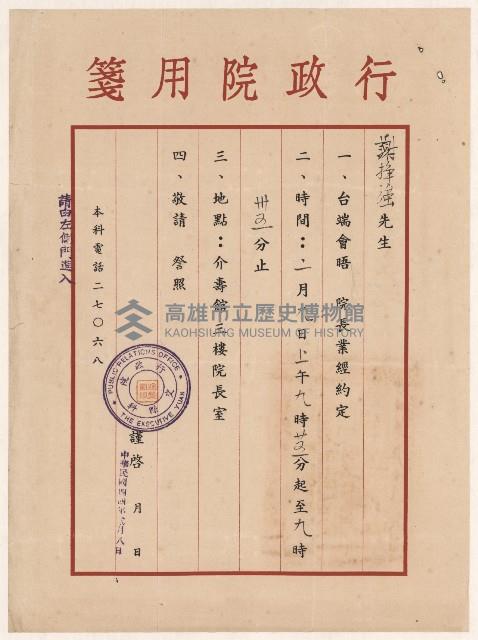 行政院用箋
謝掙強先生
一、台端會晤　院長業經約定
二、時間：二月　日上午九時　分起至九時
卅五分止
三、地點：介壽館三樓院長室
四、敬請　詧照
謹啓　月　日
中華民國四四年　月八日
本科電話二七〇六八
請由左側門進入
PUBLIC RELATIONS OFFICE
THE EXECUTIVE YUAN
行政院交際科
高雄市立歷史博物館
KAOHSIUNG MUSEUM OF HISTORY